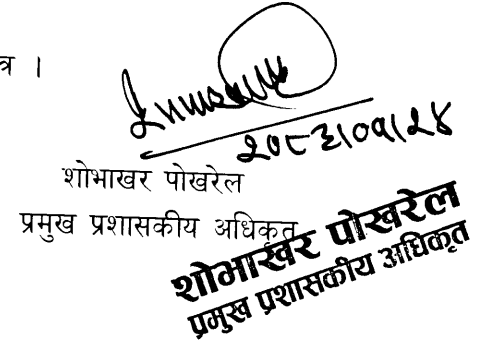 त्र ।
२०८३।०१।२४
शोभाखर पोखरेल
प्रमुख प्रशासकीय अधिकृत
शोभाखर पोखरेल
प्रमुख प्रशासकीय अधिकृत